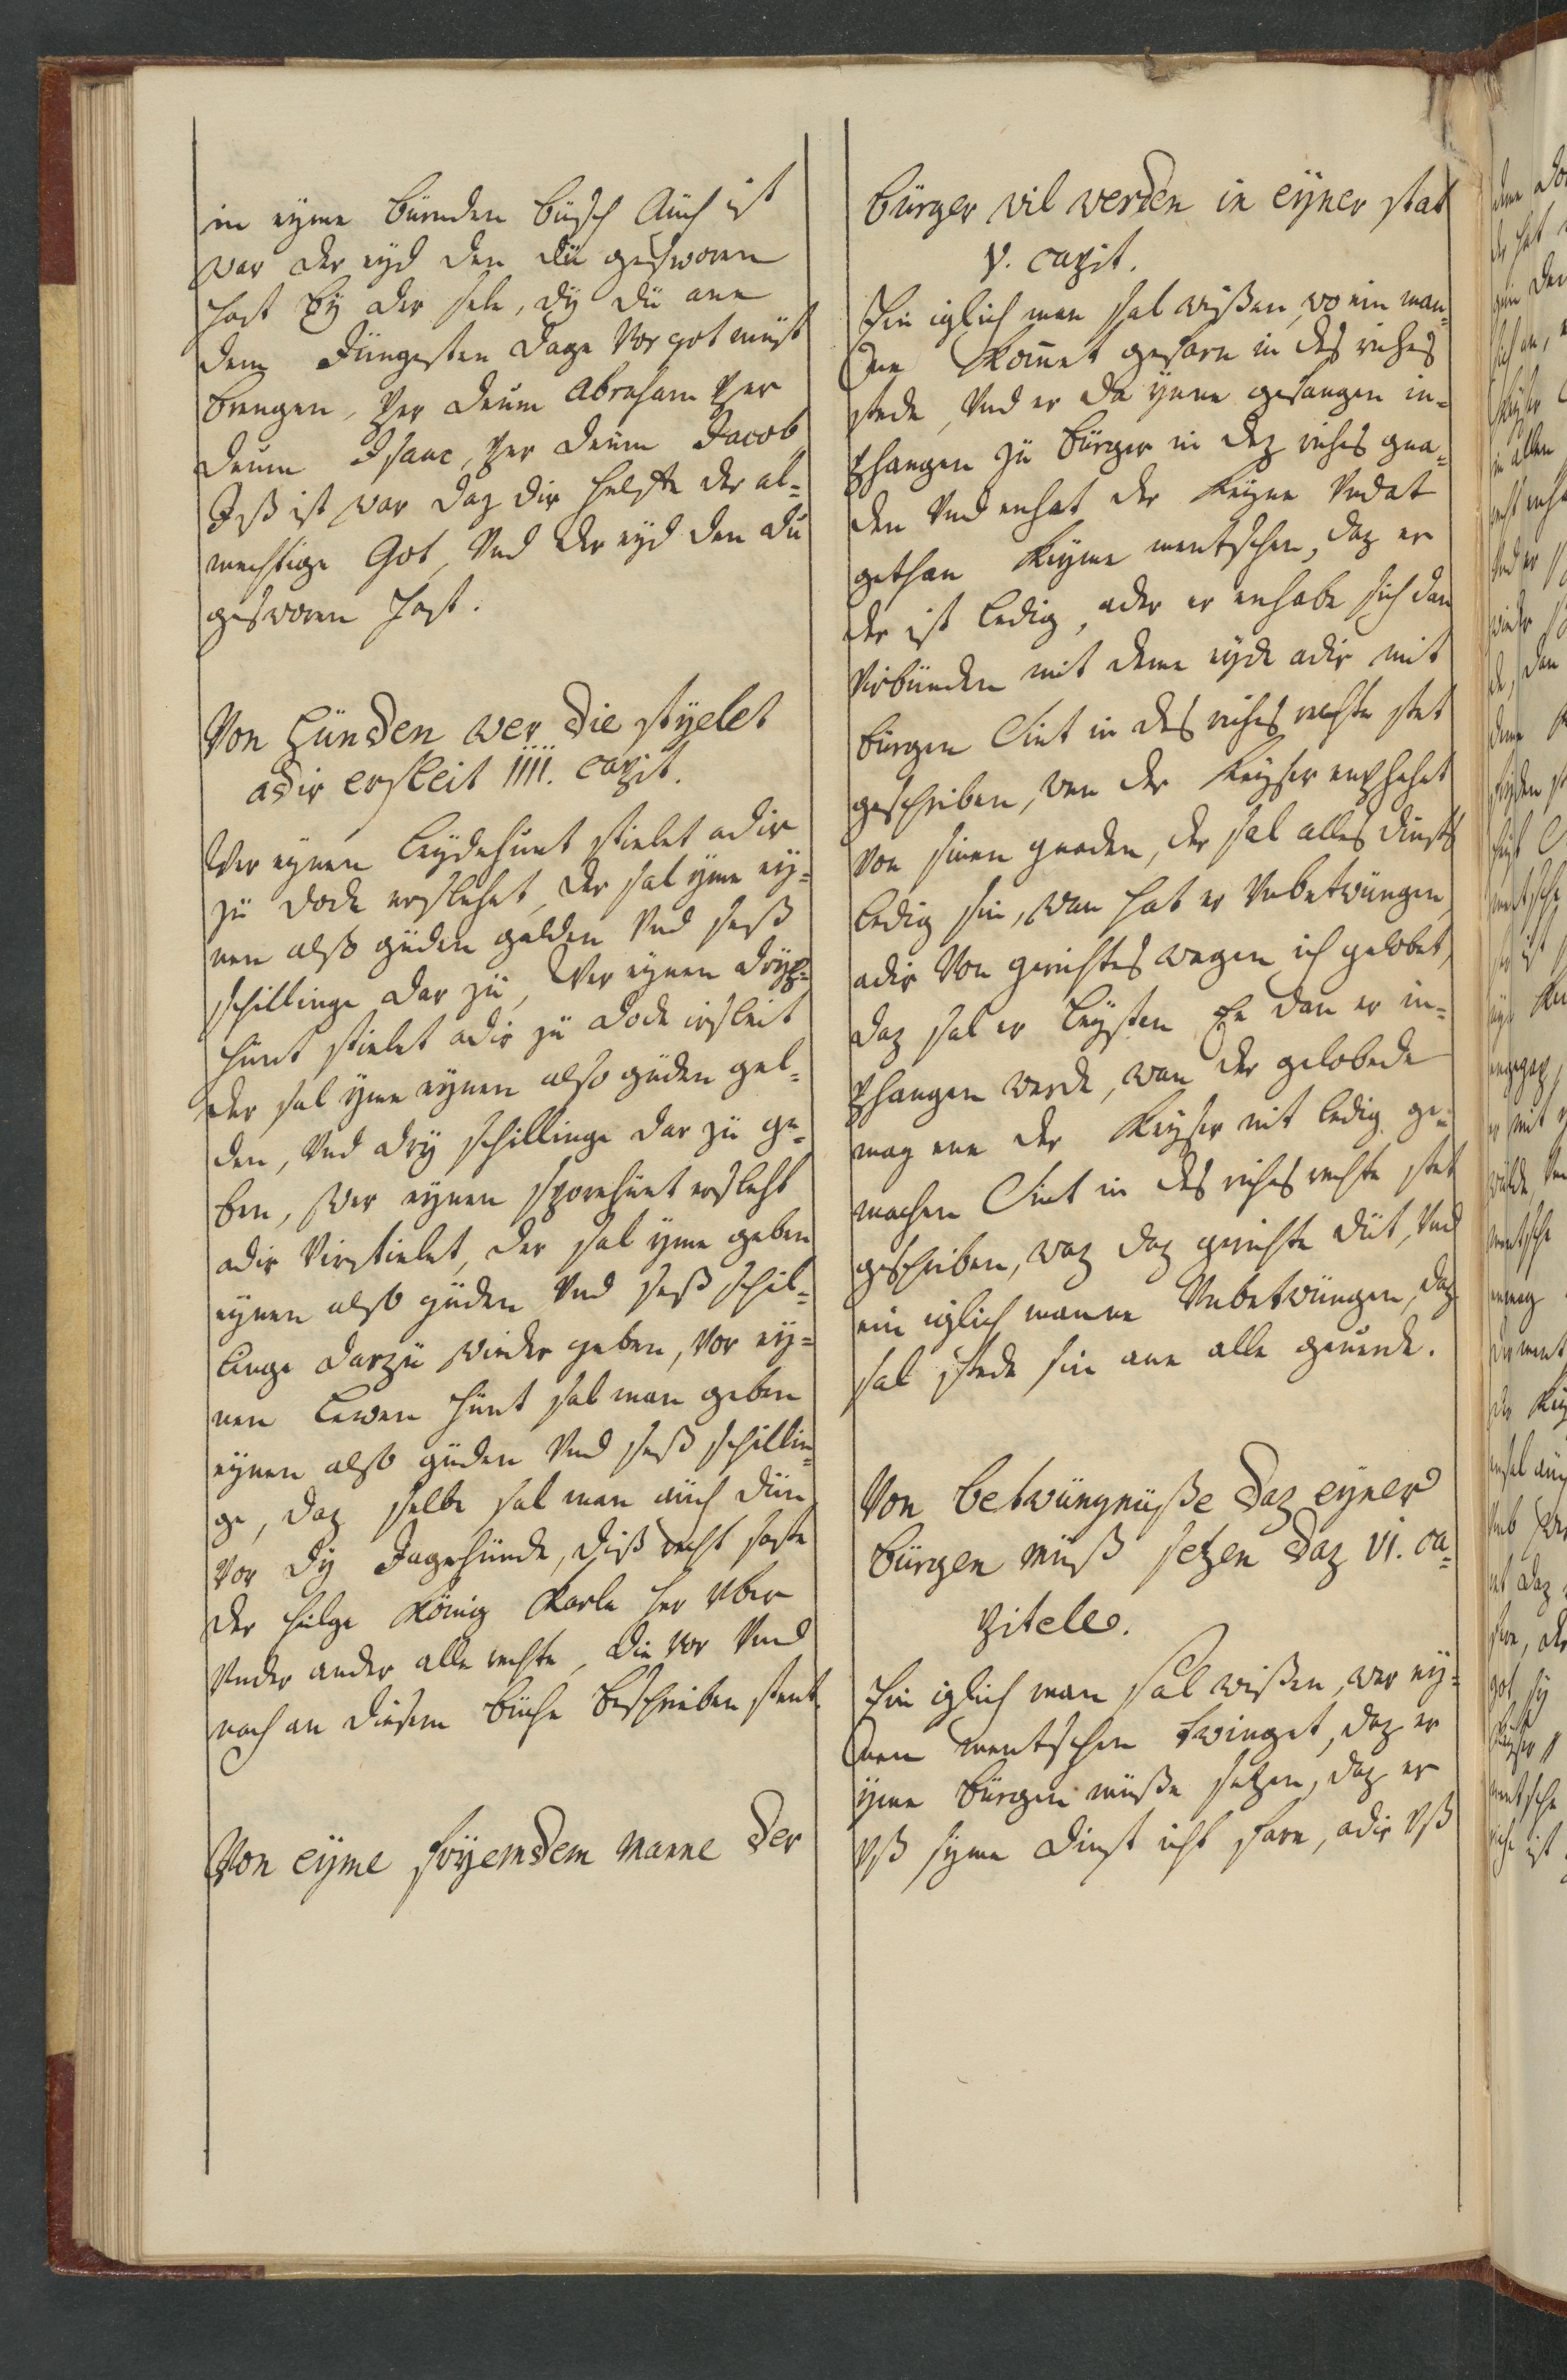 in eyme bürnden büsch Auch ist
war der eyd den dü gesworen
hast by der sele, dy dü ane
dem Jüngesten dage Vor got müst
brengen, per deum Abraham per
deum Isaac, per deum Jacob
Iß ist war daz dir helffe der al=
mechtige Got, Vnd der eyd den du
gesworen hast.
Von hünden wer die styelet
adir ersleit IIII. capit.
Wer eynen leydehunt stielet adir
zü dode erslehet, der sal yme ey=
nen alß güden gelden Vnd seß
schillinge dar zü, Wer eynen dryp=
hünt stielet adir zü dode irsleit
der sal yme eynen also güden gel=
den, Vnd dry schillinge dar zü ge=
ben, Wer eynen sporehünt ersleht
adir Virstielet, der sal yme geben
eynen also güden Vnd seß schil=
linge darzü wieder geben, Vor ey=
nen lewen hünt sal man geben
eynen also güden Vnd seß schillin=
ge, daz selbe sal man auch dün
Vor dy Jagehünde, diß recht saste
der heilge König Karle her Vber
Vnder ander alle rechte, die Vor Vnd
nach an diesem büche beschrieben stent.
Von eyme fryemdem manne der
bürger wil werden in eyner stat
V. capit.
Ein iglich man sal wißen, wo ein man
ene kommet gefarn in des riches
stede, Vnd er da ynne gefangen in=
phangen zü bürger in dez riches gna=
den Vnd enhat der keyne Vndat
gethan keyme mentschen, daz er
der ist ledig, ader er enhabe sich dan
Virbünden mit deme eyde adir mit
bürgen Sint in des riches rechte stet
geschrieben, wen der keyser enphehet
von sinen gnaden, der sal alles dinsts
ledig sin, wan hat er Vnbetwüngen
adir Von gerichtes wegen ich gelobet,
daz sal er leysten Ee dan er in=
phangen werde, wan der gelobede
mag ene der keyser nit ledig ge=
machen Sint in des riches rechte stet
geschrieben, waz daz gerichte düt, Vnd
ein iglich manne Vnbetwüngen, daz
sal stede sin ane alle geuerde.
Von betwüngnüße daz eyner
bürgen müß setzen daz VI. ca=
pitele.
Ein iglich man sal wißen, wer ey=
nen mentschen twinget, daz er
yme bürgen müße setzen, daz er
Vß syme dinst icht fare, adir Vß